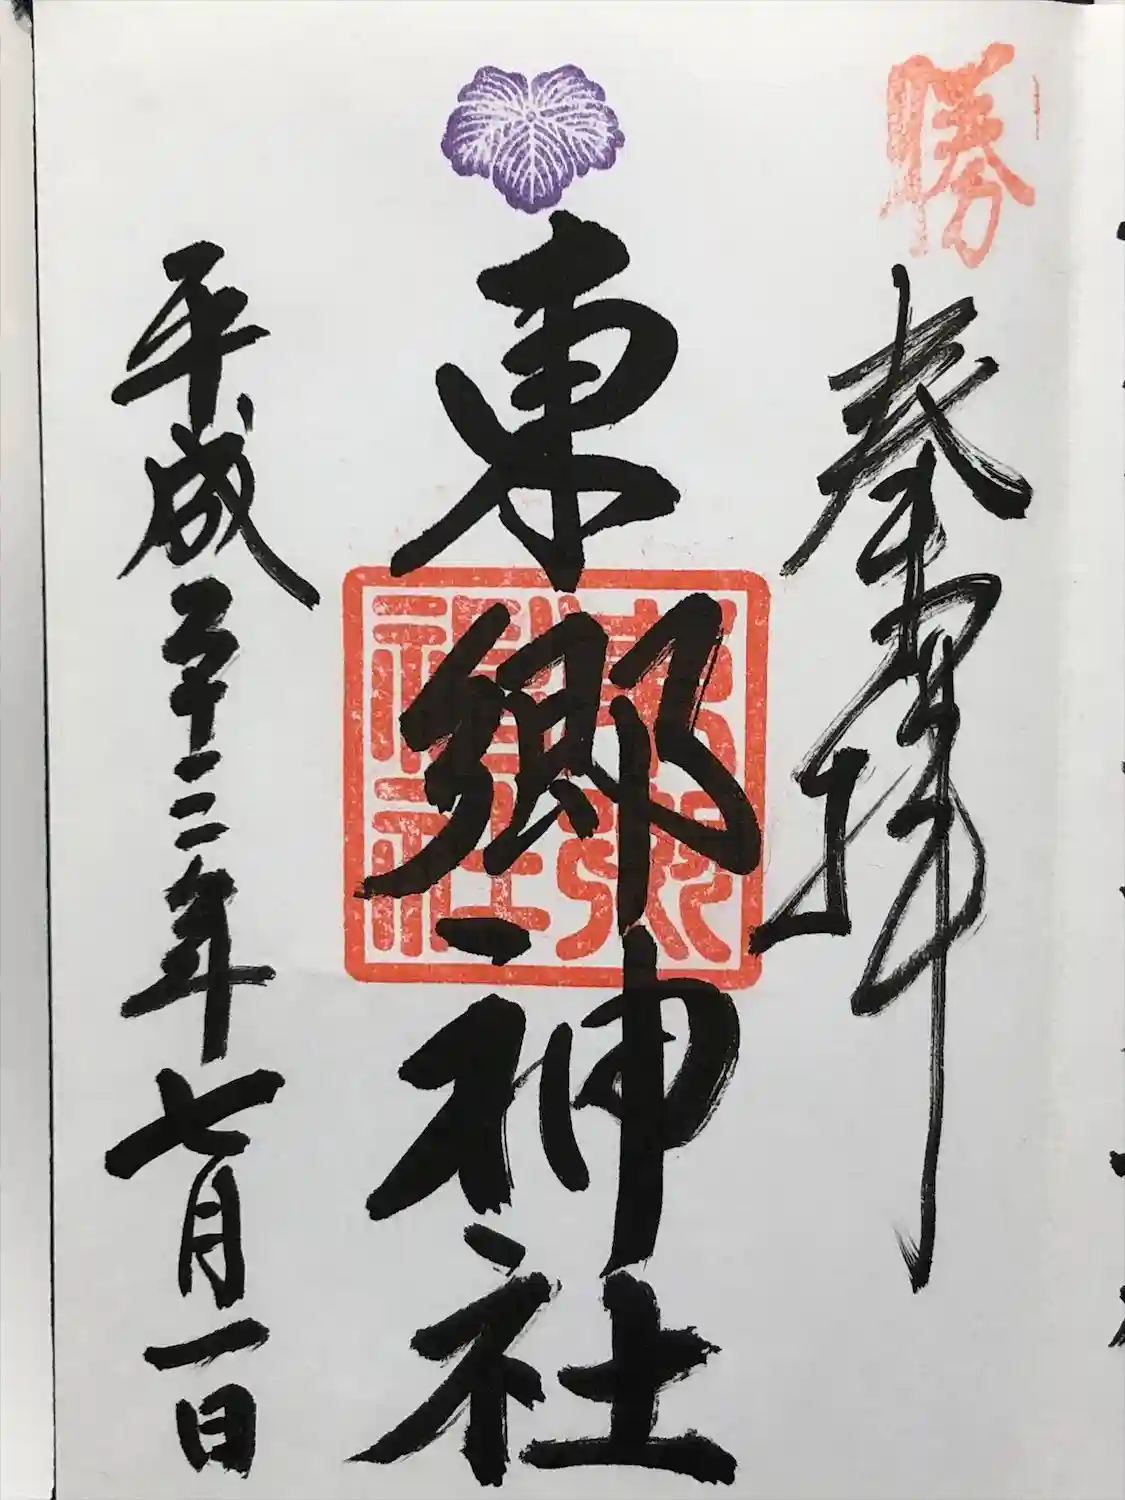 勝
奉拝
東郷神社
東郷神社
平成二十三年七月一日